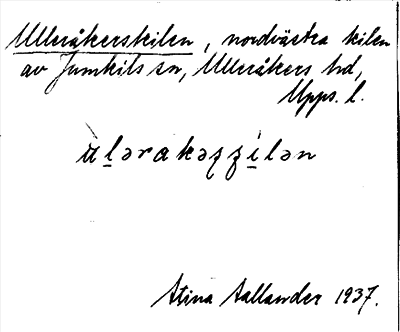 Ulleråkerskilen, nordvästra kilen
av Jumkils sn, Ulleråkers hd,
Upps. l.
ùlərakəʂʂilən
Stina Sallander 1937.